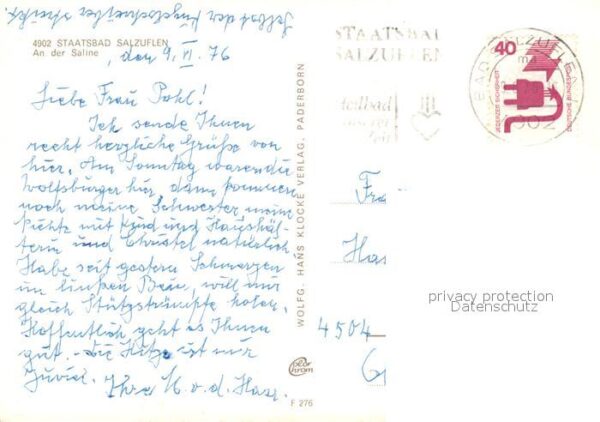 selbst der Kugelschreiber streikt.
4902 STAATSBAD SALZUFLEN
An der Saline
, den 9. VI. 76
Liebe Frau Pohl!
Ich sende Ihnen
recht herzliche Grüße von
hier. Am Sonntag waren die
Wolfsburger hier, dann kommen
noch meine Schwester, meine
Nichte mit Kind und Haushäl-
terin und Christel natürlich
Habe seit gestern Schmerzen
im linken Bein, will mir
gleich Stützstrümpfe holen.
Hoffentlich geht es Ihnen
gut. – Die Hitze ist mir
zuviel.
Ihre M. v. d. Haar.
WOLFG. HANS KLOCKE VERLAG, PADERBORN
color
chrom
F 276
STAATSBAD
SALZUFLEN
heilbad
unserer
Zeit
BAD SALZUFLEN
4902
40
JEDERZEIT SICHERHEIT
DEUTSCHE BUNDESPOST
Frau
Has
4504
privacy protection
Datenschutz